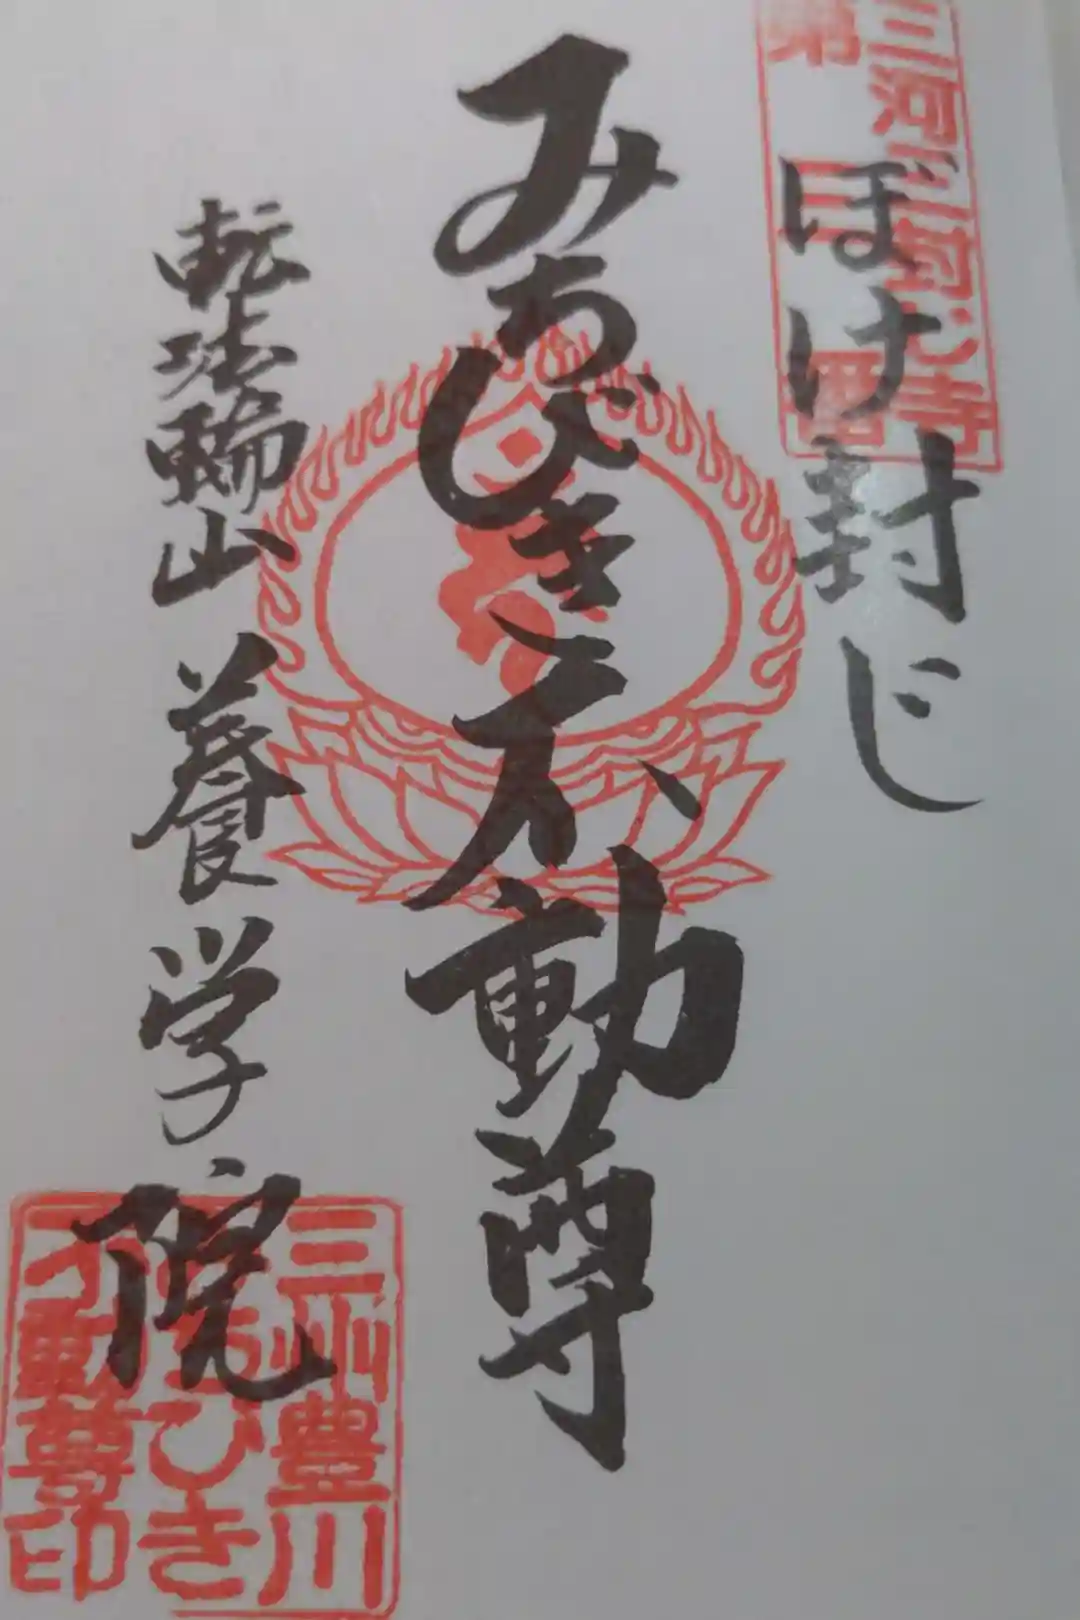 三河三封じ寺
第三番
ぼけ封じ
みちびき不動尊
転法輪山 養学院
三州豊川
みちびき
不動尊印